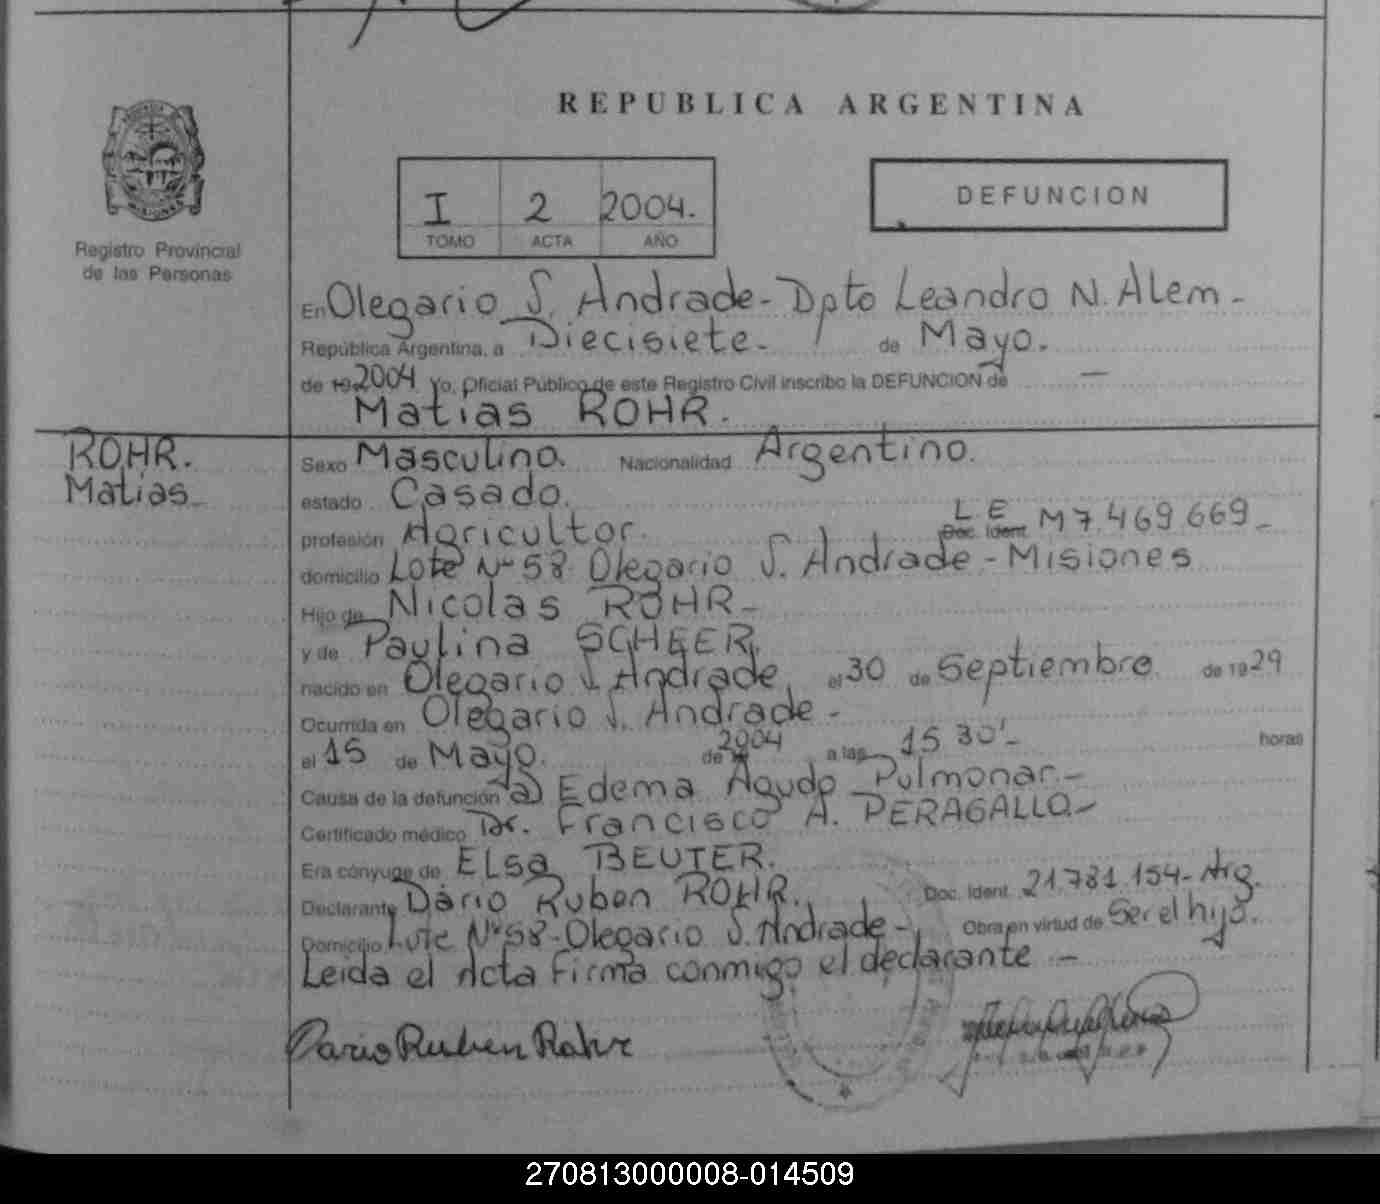 REPUBLICA ARGENTINA
MISIONES
Registro Provincial
de las Personas
I 2 2004.
TOMO ACTA AÑO
DEFUNCION
En Olegario S. Andrade - Dpto Leandro N. Alem -
República Argentina, a Diecisiete - de Mayo.
de 19 2004 Yo, Oficial Público de este Registro Civil inscribo la DEFUNCION de —
Matias ROHR.
ROHR.
Matias
Sexo Masculino. Nacionalidad Argentino.
estado Casado.
profesión Agricultor. Doc. Ident. L E M7.469.669-
domicilio Lote Nº 58 Olegario S. Andrade - Misiones
Hijo de Nicolas ROHR -
y de Paulina SCHEER.
nacido en Olegario S. Andrade el 30 de Septiembre de 1929
Ocurrida en Olegario S. Andrade -
el 15 de Mayo. de 2004 a las 15 30' - horas
Causa de la defunción a) Edema Agudo Pulmonar. -
Certificado médico Dr. Francisco A. PERAGALLO -
Era cónyuge de ELsa BEUTER.
Declarante Dário Ruben ROHR. Doc. Ident. 21.781.154 - Arg.
Domicilio Lote Nº 58 - Olegario S. Andrade - Obra en virtud de Ser el hijo.
Leida el Acta Firma conmigo el declarante -
Dario Ruben Rohr
270813000008-014509